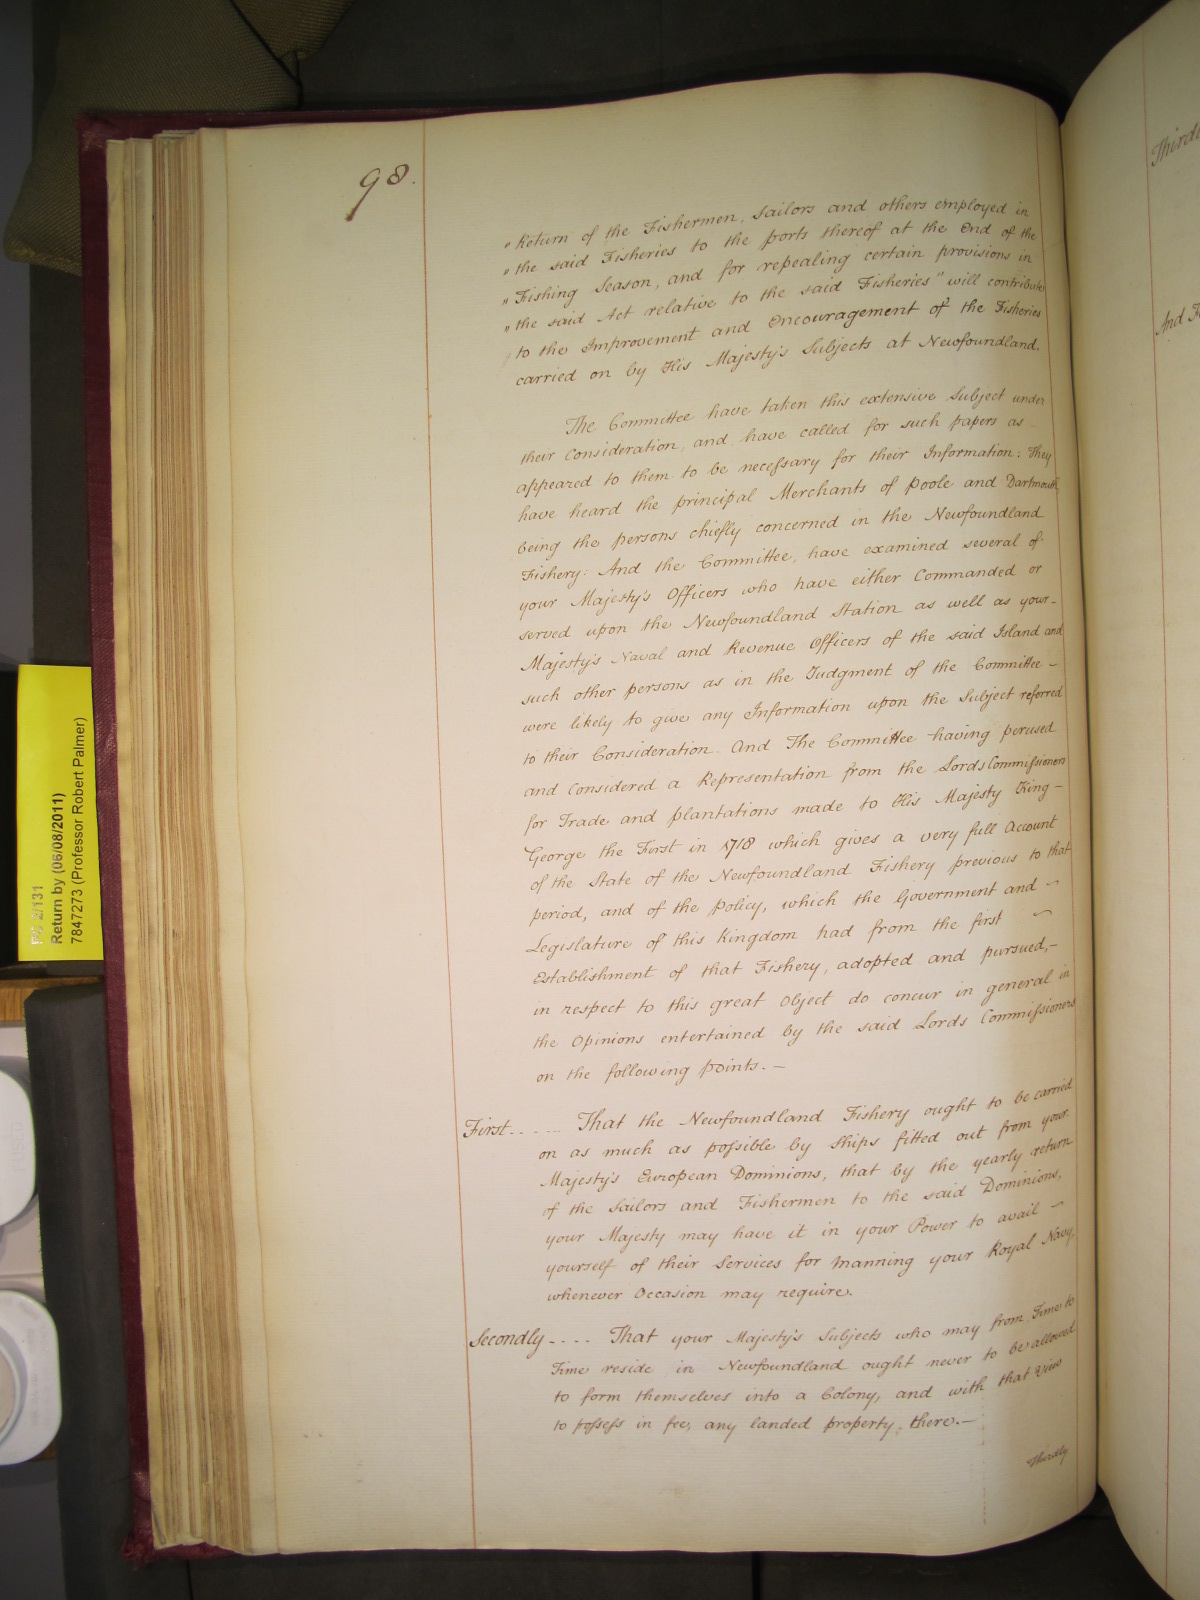 98.
„Return of the Fishermen, Sailors and others employed in
„the said Fisheries to the ports thereof at the End of the
„Fishing Season, and for repealing certain provisions in
„the said Act relative to the said Fisheries" will contribute
to the Improvement and Encouragement of the Fisheries
carried on by His Majesty's Subjects at Newfoundland.
The Committee have taken this extensive Subject under
their Consideration, and have called for such papers as
appeared to them to be necessary for their Information: They
have heard the principal Merchants of Poole and Dartmouth,
being the persons chiefly concerned in the Newfoundland
Fishery: And the Committee, have examined several of
your Majesty's Officers who have either Commanded or
served upon the Newfoundland Station as well as your-
Majesty's Naval and Revenue Officers of the said Island and
such other persons as in the Judgment of the Committee -
were likely to give any Information upon the Subject referred
to their Consideration. And The Committee having perused
and Considered a Representation from the Lords Commissioners
for Trade and plantations made to His Majesty King -
George the First in 1718 which gives a very full Account
of the State of the Newfoundland Fishery previous to that
period, and of the Policy, which the Government and -
Legislature of this Kingdom had from the first -
Establishment of that Fishery, adopted and pursued,-
in respect to this great Object do concur in general in
the Opinions entertained by the said Lords Commissioners
on the following points. -
First...... That the Newfoundland Fishery ought to be carried
on as much as possible by Ships fitted out from your
Majesty's European Dominions, that by the yearly return
of the Sailors and Fishermen to the said Dominions,
your Majesty may have it in your Power to avail -
yourself of their Services for Manning your Royal Navy,
whenever Occasion may require.
Secondly - . . . That your Majesty's Subjects who may from Time to
Time reside in Newfoundland ought never to be allowed
to form themselves into a Colony, and with that View
to possess in fee, any landed property, there. -
Thirdly
Thirdl
And F
PC 2/131
Return by (06/08/2011)
7847273 (Professor Robert Palmer)